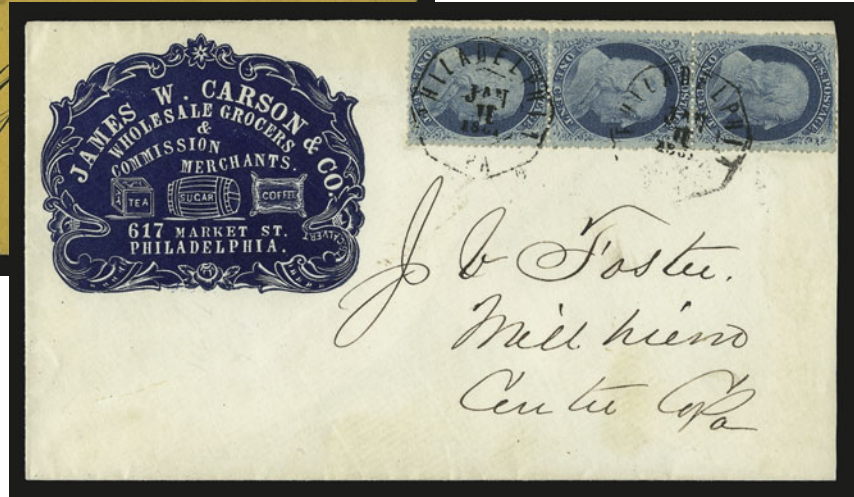 JAMES W. CARSON & CO.
WHOLESALE GROCERS
&
COMMISSION
MERCHANTS.
TEA
SUGAR
COFFEE
617 MARKET ST.
PHILADELPHIA.
CALVERT
U.S. POSTAGE.
PHILADELPHIA
JAN
11
PA
PHILADELPHIA
JAN
11
J C Foster.
Mill
Centre Co Pa